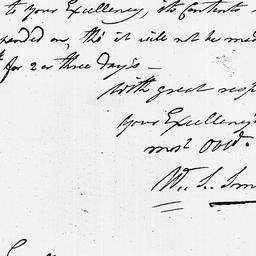 to your Excellency, its contents
pended on, tho' it will not be
for 2 or three days —
with great resp
your Excellency's
most Obdt.
Wm. S. Sm